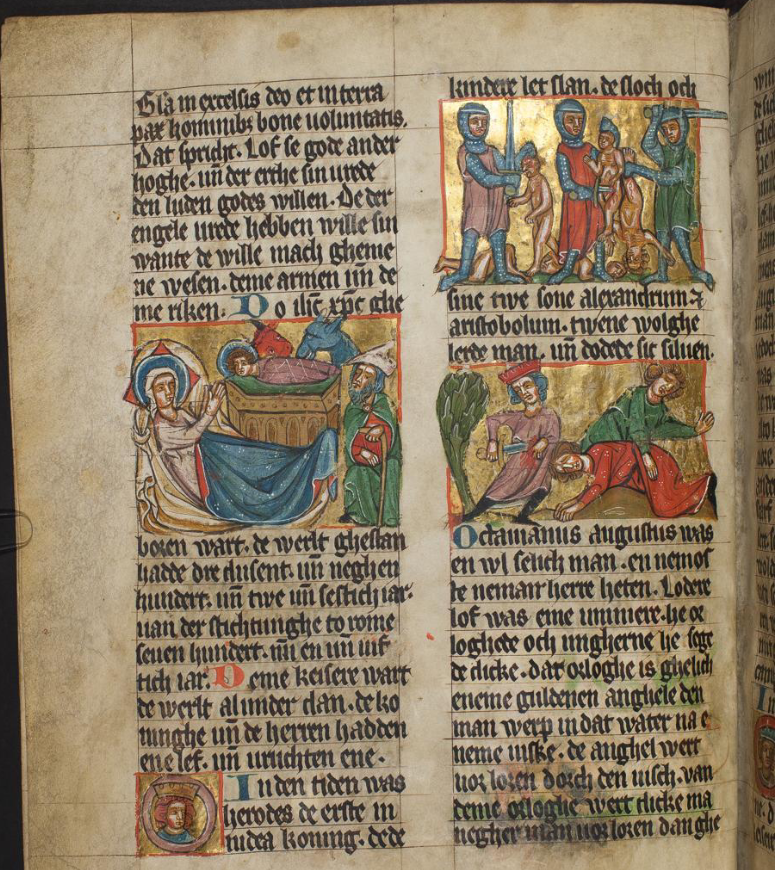 Gła in excelsis deo et in terra
pax hominibꝫ bone uoluntatis.
Dat spricht. Lof se gode ander
hoghe. uñ der erthe sin urede
den luden godes willen. De der
engele urede hebben wille sin
wante de wille mach gheme
ne wesen. deme armen uñ de
me riken. Do ih̄c xp̄c ghe
boren wart. de werlt ghestan
hadde dre dusent. uñ neghen
hundert. uñ twe uñ sestich iar.
uan der stichtunghe to rome
seuen hundert. uñ en uñ uif
tich iar. Deme keisere wart
de werlt al under dan. de ko
ninghe uñ de herren hadden
ene lef. uñ uruchten ene.
In den tiden was
herodes de erste in
iudea koning. de de
kindere let slan. de sloch och
sine twe sone alexandrum ⁊
aristobolum. twene wolghe
lerde man. uñ dodede sic siluen.
Octauianus augustus was
en wl selich man. en
herre heten. Lodere
lof was eme unmere. he or
loghede och ungherne he sege
de dicke. dat orloghe is ghelich
eneme guldenen anghele den
man werp in dat water na e
neme uiske. de anghel wert
uor loren dorch den uisch. uan
deme orloghe wert dicke ma
negher man uor loren dan ghe